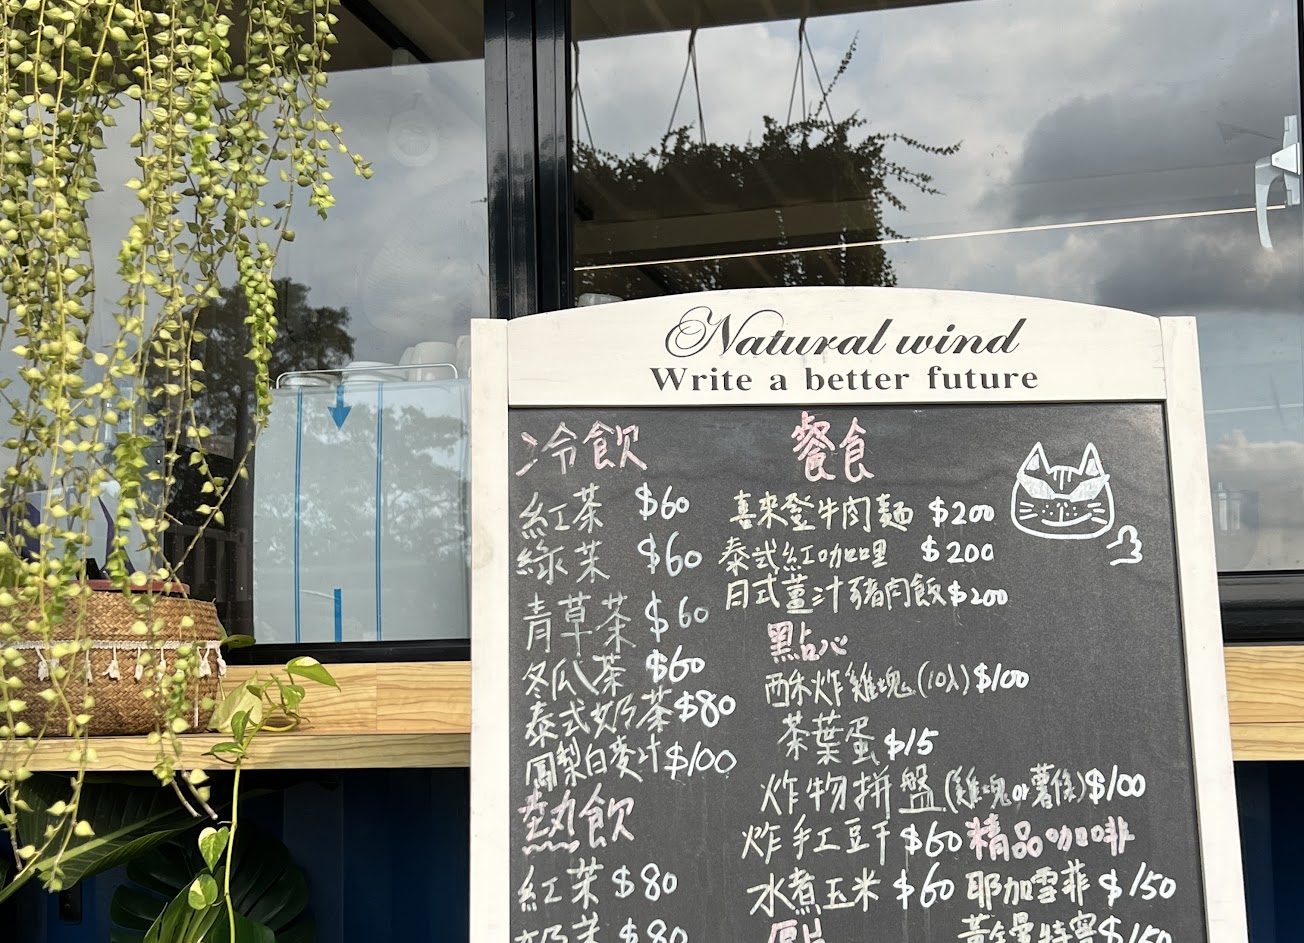 Natural wind
Write a better future
冷飲
紅茶 $60
綠茶 $60
青草茶 $60
冬瓜茶 $60
泰式奶茶 $80
鳳梨白麥汁 $100
熱飲
紅茶 $80
奶茶 $80
餐食
喜來登牛肉麵 $200
泰式紅咖哩 $200
日式薑汁豬肉飯 $200
點心
酥炸雞塊(10入) $100
茶葉蛋 $15
炸物拼盤(雞塊or薯條) $100
炸手工豆干 $60
水煮玉米 $60
精品咖啡
耶加雪菲 $150
黃金曼特寧 $150